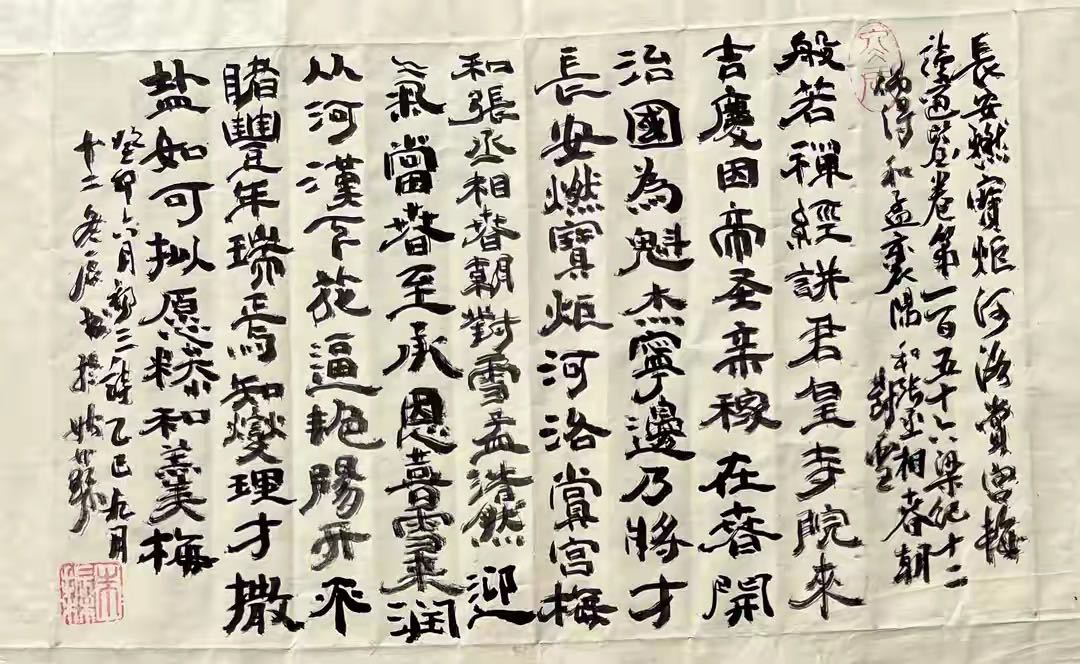 長安燃寶炬河洛賞宮梅
讀通鑒卷第一百五十六梁紀十二
偶得和孟襄陽和張丞相春朝
對雪
般若禪經講君皇寺院來
吉慶因帝圣棄稼在春開
治國為魁杰寧邊乃將才
長安燃寶炬河洛賞宮梅
和張丞相春朝對雪孟浩然迎
氣當春至承恩喜雪来润
从河漢下花逼艳陽开不
睹豐年瑞焉知燮理才撒
盐如可拟愿糁和羹梅
癸卯六月初三詩乙巳九月
十二